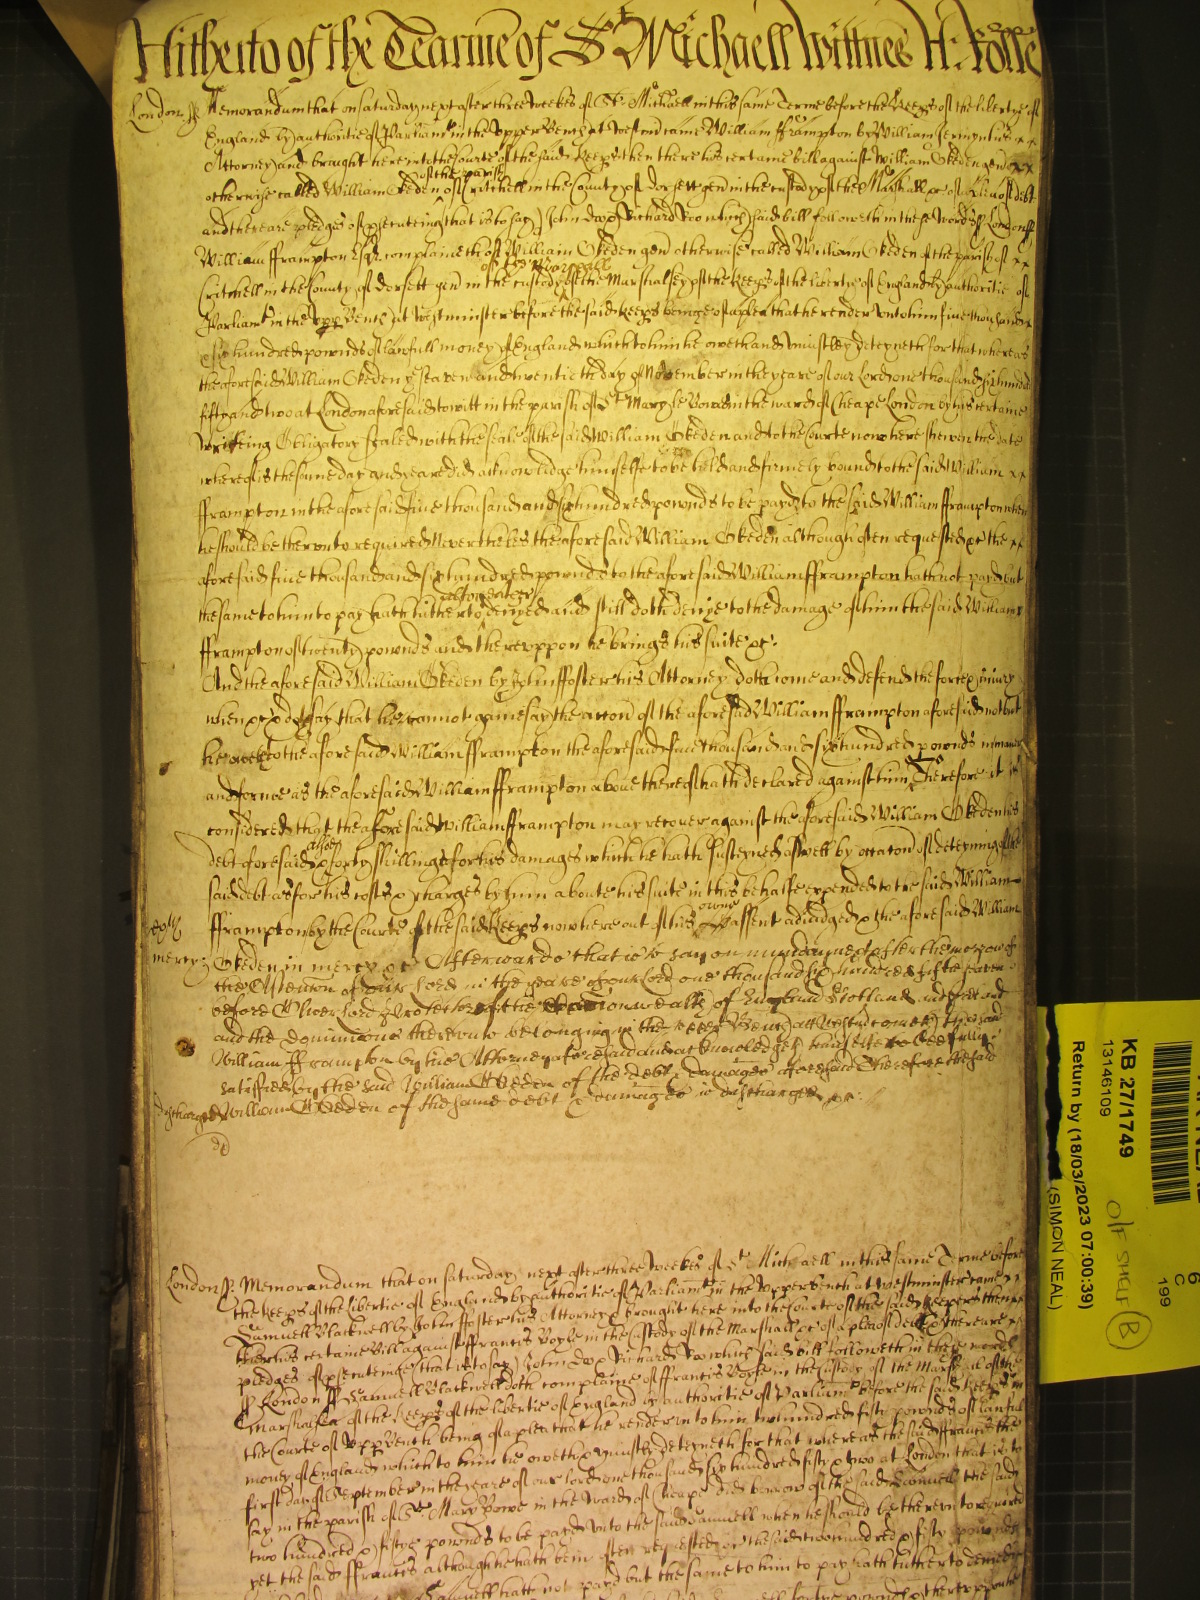 Hitherto of the Tearme of St Michaell Wittnes H: Rolle
London ss Memorandum that on Saturday next after three weekes of St. Michaell in this same Terme before the Keeps of the libertye of
England by authoritie of Parliamt in the Upper Bench at Westmr came William fframpton by William his
Attorney and brought here into the Courte of the said Keeps then there his certaine bill against William Okeden gent xx
otherwise called William Okeden of the parish of Critchell in the County of Dorsett gent in the custody of the Marshall &c of a plea of debt
and there are pledges of prosecuteing (that is to say) John Doo & Richard Roo which said bill followeth in these words ss London ss
William fframpton Esqr complaineth of William Okeden gent otherwise called William Okeden of the parish of xx
Critchell in the County of Dorsett gent in the custody of the Marshall of the Marshalsey of the Keeps of the liberty of England by authoritie of
Parliamt in the Upp Bench at Westminster before the said Keeps beinge of a plea that he render unto him five thousand
& six hundred pownds of lawfull money of England which to him he oweth and uniustly deteyneth for that whereas
the aforesaid William Okeden ye seaven and twentieth day of November in the yeare of our Lord one thousand six hundred
fifty and two at London aforesaid to witt in the parish of St Mary le Bow in the ward of Cheape London by his certaine
writeing Obligatory sealed with the seale of the said William Okeden and to the Courte now here shewen the date
whereof is the same day and yeare did acknowledge himselfe to be held and firmely bound to the said William xx
fframpton in the aforesaid five thousand and six hundred pownds to be payd to the said William fframpton when
he should be therunto required Neverthelesse the aforesaid William Okeden although often requested &c the xx
aforesaid five thousand and six hundred pownds to the aforesaid William fframpton hath not payd but
the same to him to pay hath hitherto altogeather denyed and still doth denye to the damage of him the said William
fframpton of twenty pownds and thereuppon he brings his suite &c:
And the aforesaid William Okeden by John ffoster his Attorney doth come and defend the force & iniury
when &c & doth say that hee cannot gainesay the accon of the aforesaid William fframpton aforesaid nor but
he oweth to the aforesaid William fframpton the aforesaid five thousand and six hundred pownds in manner
and forme as the aforesaid William fframpton above thereof hath declared against him Therefore it is
considered that the aforesaid William fframpton may recover against the aforesaid William Okeden his
debt aforesaid & alsoe forty shillings for his damages which he hath susteyned aswell by occacon of deteyning of the
said debt as for his costs & charges by him about his suite in this behalfe expended to the said William
fframpton by the Courte of the said Keeps now here out of his owne assent adiudged & the aforesaid William
mercy:
Okeden in mercy &c Afterwards that is to say on munday next after the morrow of
the Assention of our Lord in the yeare of our Lord one thousand six hundred fiftie seaven
before Oliver Lord Protector of the Commonwealth of England Scotland and Ireland
and the dominions thereunto belonging in the Upper Bench att Westmr cometh the said
William fframpton by his Attorney aforesaid and acknowledgeth himselfe to bee fully
satisfied by the said William Okeden of the debt & damages aforesaid Therefore the said
discharged William Okeden of the same debt & damages is discharged &c:
London ss Memorandum that on saturday next after three weekes of St Michaell in this same Terme before
the Keeps of the libertie of England by authoritie of Parliamt in the Upper bench at Westminster came xx
Samuell Blacknell by John ffoster his Attorney & brought here into the Courte of the said Keepers then xx
there his certaine Bill against ffrancis Boyle in the Custody of the Marshall &c of a plea of debt & there are x
pledges of prosecuteinge (that is to say) John Doo & Richard Roo which said bill followeth in these words
ss London ss Samuell Blacknell doth complaine of ffrancis Boyle in the Custody of the Marshall of the
Marshalsea of the Keeps of the libertie of England by authoritie of Parliamt before the said Keeps in
the Courte of Upp Bench being of a plea that he render unto him two hundred fifty pownds of lawful
money of England which to him he oweth & uniustly deteyneth for that whereas the said ffrancis the
first day of September in the yeare of our lord one thousand six hundred fifty & two at London that is to
say in the parish of St Mary Bowe in the Ward of Cheape did borrow of the said Samuell the said
two hundred & fiftye pownds to be payd unto the said Samuell when he should be thereunto required
yet the said ffrancis although he hath bein often requested &c the said two hundred & fifty pownds
Samuell hath not payd but the same to him to pay hath hitherto denied
KB 27/1749
13146109
Return by (18/03/2023 07:00:39)
(SIMON NEAL)
O/F SHELF B
6
C
199